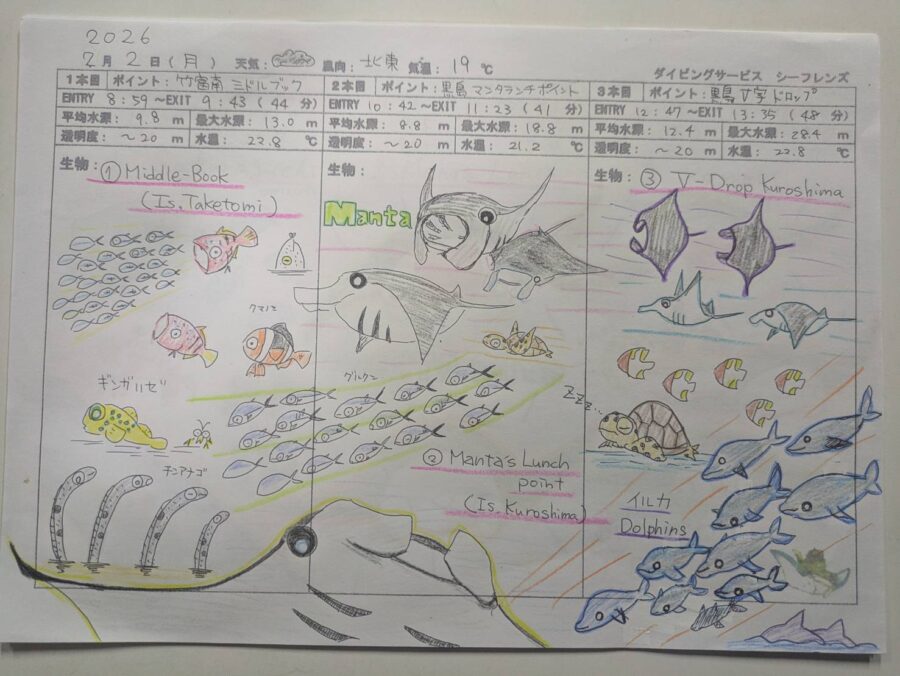 2026
2月 2日(月) 天気: 風向: 北東 気温: 19 ℃
ダイビングサービス シーフレンズ
1本目 ポイント: 竹富南 ミドルブック
ENTRY 8:59 ~EXIT 9:43 (44 分)
平均水深: 9.8 m 最大水深: 13.0 m
透明度: ~20 m 水温: 22.8 ℃
生物: ① Middle-Book
(Is.Taketomi)
クマノミ
ギンガハゼ
チンアナゴ
2本目 ポイント: 黒島 マンタランチポイント
ENTRY 10:42 ~EXIT 11:23 (41 分)
平均水深: 8.8 m 最大水深: 18.8 m
透明度: ~20 m 水温: 21.2 ℃
生物:
Manta
グルクン
② Manta's Lunch
point
(Is.Kuroshima)
3本目 ポイント: 黒島 V字ドロップ
ENTRY 12:47 ~EXIT 13:35 (48 分)
平均水深: 12.4 m 最大水深: 28.4 m
透明度: ~20 m 水温: 22.8 ℃
生物: ③ V-Drop Kuroshima
Zzz...
イルカ
Dolphins